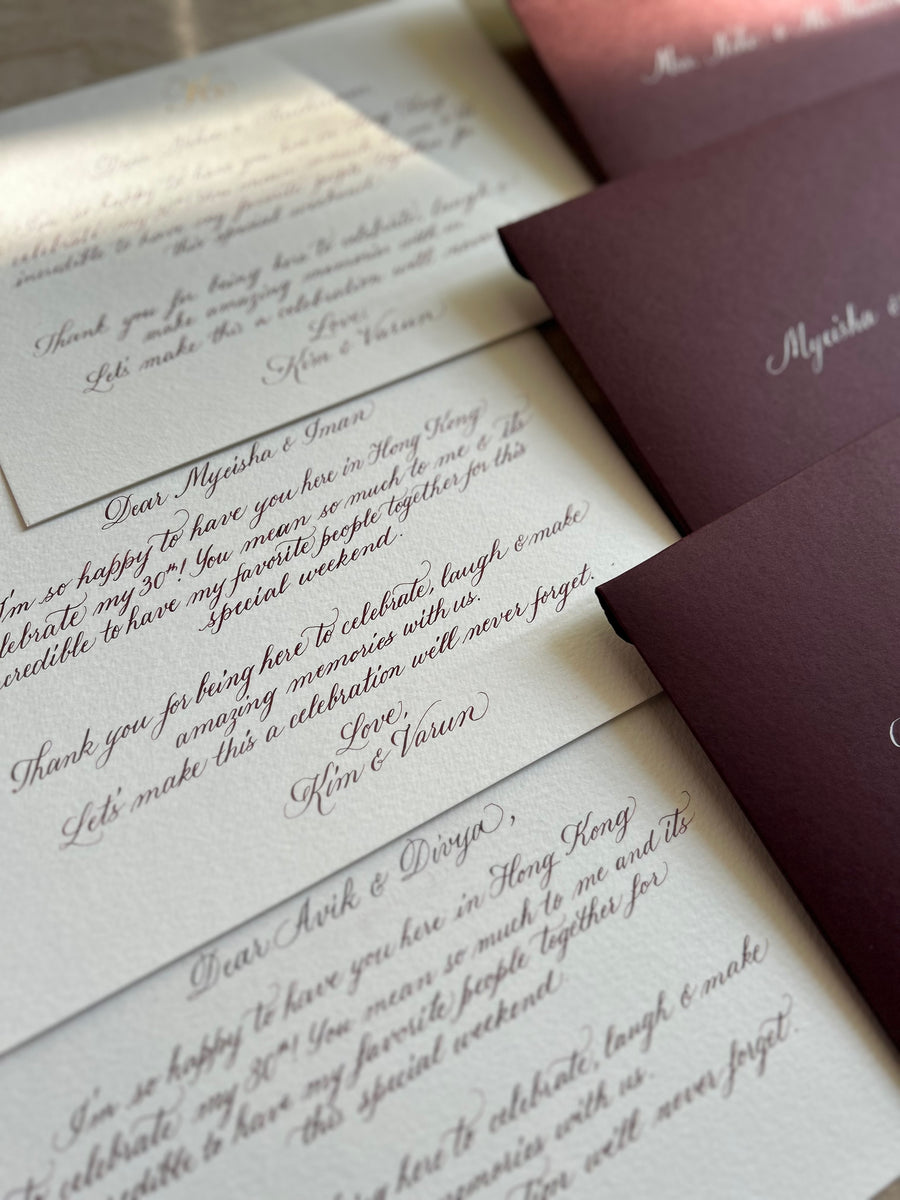 Dear
I'm so happy to have you here in Hong Kong
celebrate my
incredible to have my favorite people together for
this special weekend.
Thank you for being here to celebrate, laugh &
make amazing memories with us.
Let's make this a celebration we'll never
Love,
Kim & Varun
Dear Myeisha & Iman
I'm so happy to have you here in Hong Kong
lebrate my 30th! You mean so much to me & its
credible to have my favorite people together for this
special weekend.
Thank you for being here to celebrate, laugh & make
amazing memories with us.
Let's make this a celebration we'll never forget.
Love,
Kim & Varun
Dear Avik & Divya,
I'm so happy to have you here in Hong Kong
to celebrate my 30th! You mean so much to me and its
credible to have my favorite people together for
this special weekend
ing here to celebrate, laugh & make
emories with us.
tion we'll never forget.
Myeisha &